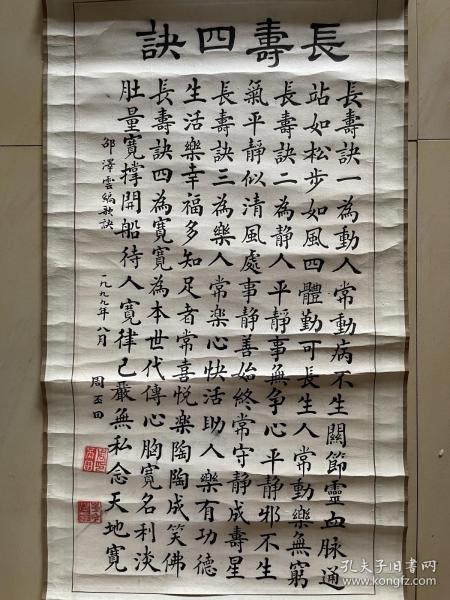 長壽四訣
長壽訣一為動人常動病不生關節靈血脉通
站如松步如風四體勤可長生人常動樂無窮
長壽訣二為静人平静事無争心平静邪不生
氣平静似清風處事静善始終常守静成壽星
長壽訣三為樂人常樂心快活助人樂有功德
生活樂幸福多知足者常喜悦樂陶陶成笑佛
長壽訣四為寬寬為本世代傳心胸寬名利淡
肚量寬撑開船待人寬律己嚴無私念天地寬
邵澤雲編歌訣
一九九九年八月
周玉田
孔夫子旧书网
book.kongfz.com